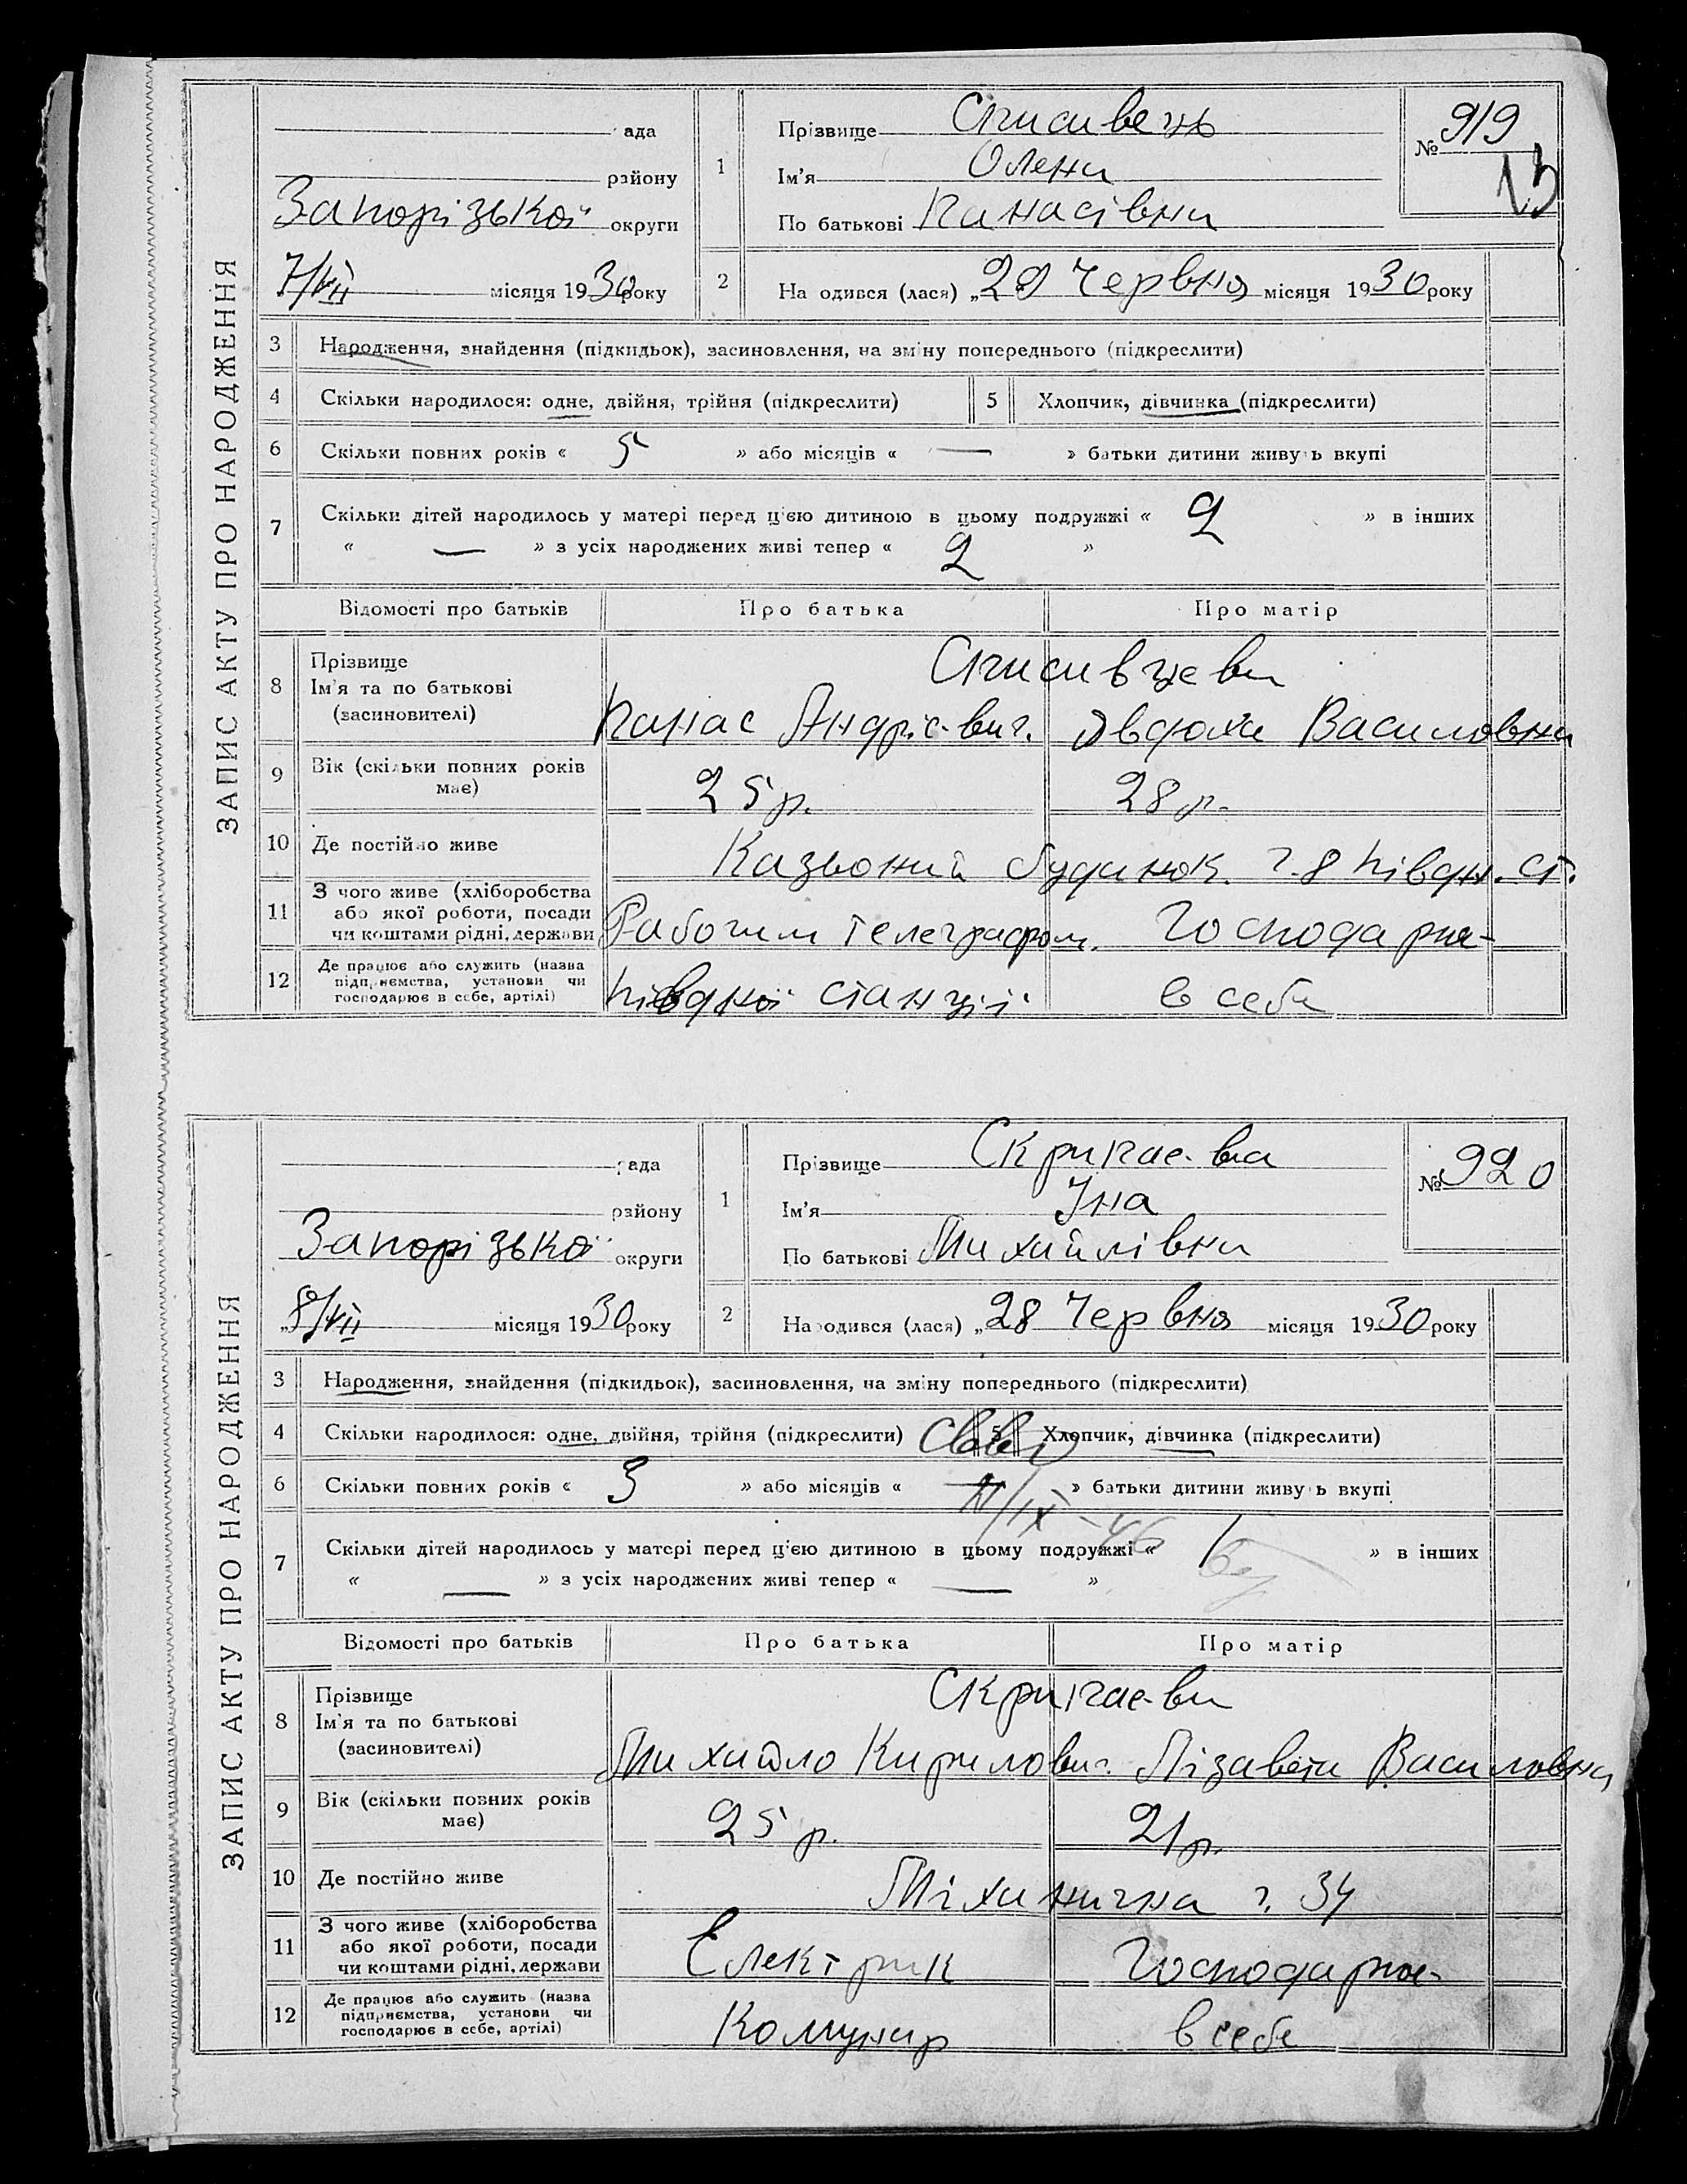 ЗАПИС АКТУ ПРО НАРОДЖЕННЯ
рада
району
Запорізької округи
7/VII місяця 1930 року
1 Прізвище
Ім'я Олена
По батькові Панасівна
№ 919
13
2 Народився (лася) „29 Червня місяця 1930 року
3 Народження, знайдення (підкидьок), засиновлення, на зміну попереднього (підкреслити)
4 Скільки народилося: одне, двійня, трійня (підкреслити) 5 Хлопчик, дівчинка (підкреслити)
6 Скільки повних років « 5 » або місяців « — » батьки дитини живуть вкупі
7 Скільки дітей народилось у матері перед цією дитиною в цьому подружжі « 2 » в інших
« — » з усіх народжених живі тепер « 2 »
Відомості про батьків Про батька Про матір
8 Прізвище
Ім'я та по батькові
(засиновителі)
Панас Андрієвич. Явдоха Василовна
9 Вік (скільки повних років має) 25 р. 28 р.
10 Де постійно живе Казьоний будинок. ч. 8 Півдн. ст.
11 З чого живе (хліборобства
або якої роботи, посади
чи коштами рідні, держави Рабочим телеграфом. Господарює
12 Де працює або служить (назва
підприємства, установи чи
господарює в себе, артілі) Південої станції в себе
ЗАПИС АКТУ ПРО НАРОДЖЕННЯ
рада
району
Запорізької округи
„8/VII місяця 1930 року
1 Прізвище Скрипаєва
Ім'я Іна
По батькові Михайлівна
№ 920
2 Народився (лася) „28 Червня місяця 1930 року
3 Народження, знайдення (підкидьок), засиновлення, на зміну попереднього (підкреслити)
4 Скільки народилося: одне, двійня, трійня (підкреслити) 5 Хлопчик, дівчинка (підкреслити)
6 Скільки повних років « 3 » або місяців « — » батьки дитини живуть вкупі
/IX-46
7 Скільки дітей народилось у матері перед цією дитиною в цьому подружжі « 1 » в інших
« — » з усіх народжених живі тепер « — »
Відомості про батьків Про батька Про матір
8 Прізвище
Ім'я та по батькові
(засиновителі) Скрипаєви
Михайло Кирилович. Лізавета Василовна
9 Вік (скільки повних років має) 25 р. 21 р.
10 Де постійно живе Міханична ч. 34
11 З чого живе (хліборобства
або якої роботи, посади
чи коштами рідні, держави Електрик Господарює
12 Де працює або служить (назва
підприємства, установи чи
господарює в себе, артілі) Комунар в себе